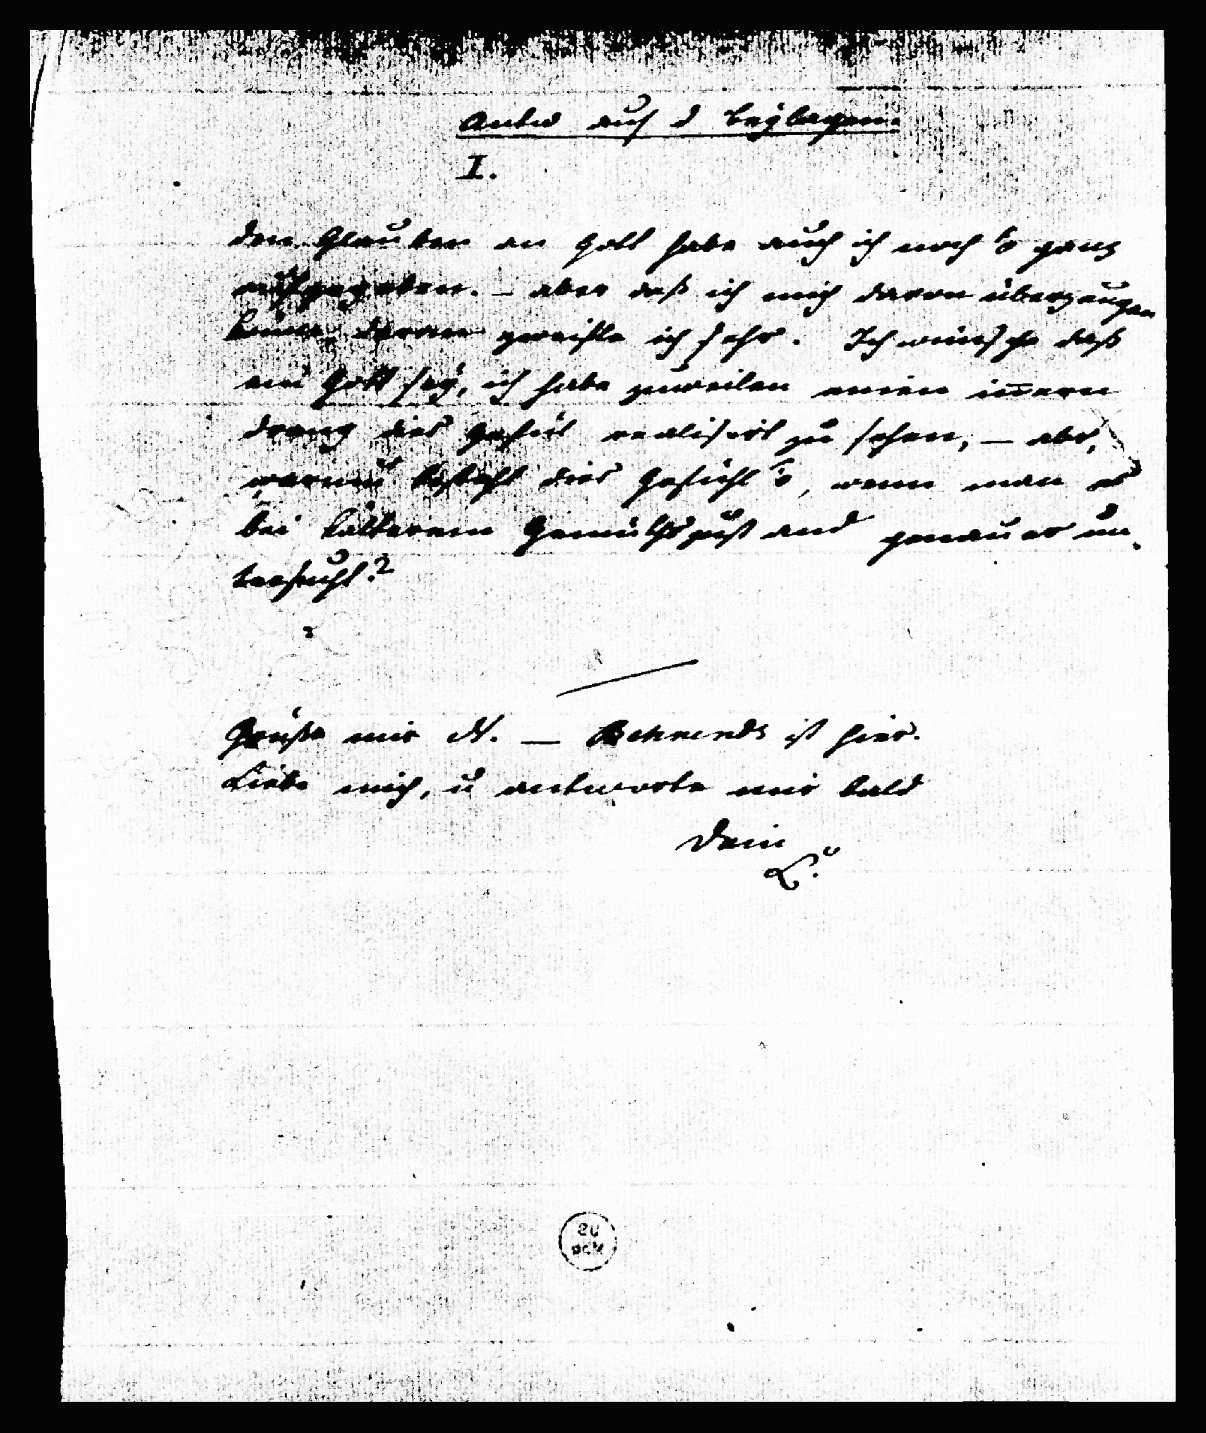 Antw auf d Beÿlagen.
I.
Den Glauben an Gott habe auch ich noch ganz
aufgegeben. – aber daß ich mich davon überzeugen
könne, daran zweifle ich sehr. Ich wünsche daß
ein Gott seÿ, ich habe zuweilen einen iñern
Drang dies Gefül realisirt zu sehen, – aber,
warum besteht dies Gefühl, wenn man es
bei kälterem Gemüthszustand genauer un-
tersucht?
Grüße mir N. – Behrends ist hier.
Liebe mich, u antworte mir bald
Dein
L.